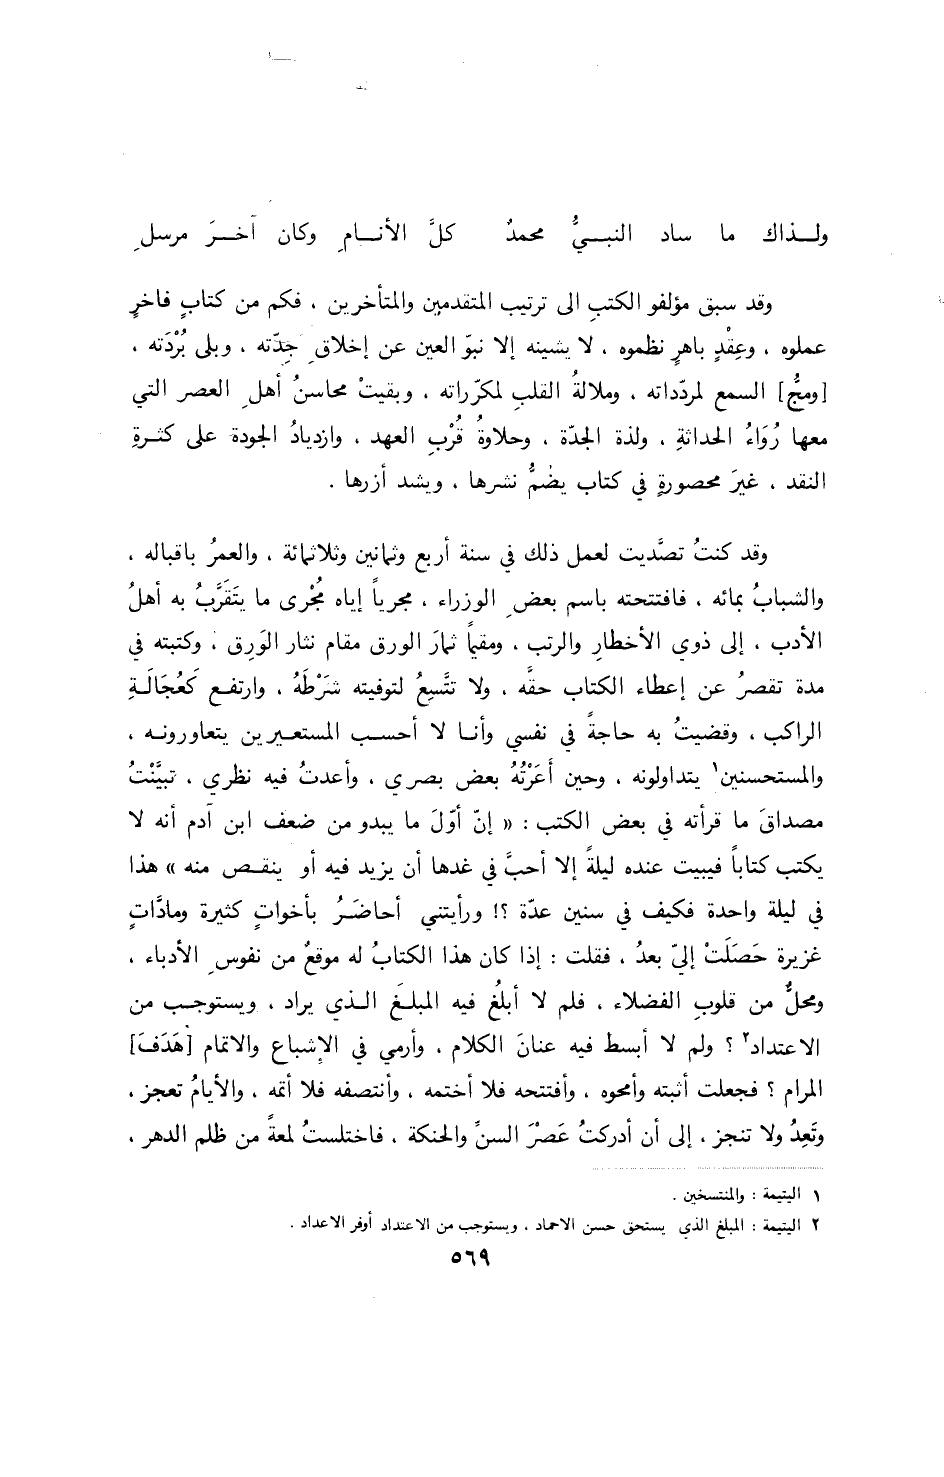 ولذاك ما ساد النبيُّ محمدٌ كلَّ الأنامِ وكان آخرَ مرسلِ
وقد سبق مؤلفو الكتب الى ترتيب المتقدمين والمتأخرين ، فكم من كتابٍ فاخرٍ
عملوه ، وعِقْدٍ باهرٍ نظموه ، لا يشينه إلا نبوّ العين عن إخلاقِ جِدّته ، وبلى بُرْدَته ،
[ومجُّ] السمع لمردّداته ، وملالةُ القلبِ لمكرّراته ، وبقيتْ محاسنُ أهلِ العصر التي
معها رُوَاءُ الحداثةِ ، ولذة الجدّة ، وحلاوةُ قُرْبِ العهد ، وازديادُ الجودة على كثرةِ
النقد ، غيرَ محصورةٍ في كتاب يضمُّ نشرها ، ويشد أزرها .
وقد كنتُ تصدَّيت لعمل ذلك في سنة أربع وثمانين وثلاثمائة ، والعمرُ باقباله ،
والشبابُ بمائه ، فافتتحته باسم بعضِ الوزراء ، مجرياً إياه مُجْرى ما يتَقَرَّبُ به أهلُ
الأدب ، إلى ذوي الأخطارِ والرتب ، ومقيماً ثمارَ الورق مقام نثار الوَرِق ، وكتبته في
مدة تقصرُ عن إعطاء الكتاب حقَّه ، ولا تتَّسِعُ لتوفيته شرْطَهُ ، وارتفع كَعُجَالَةِ
الراكب ، وقضيتُ به حاجةً في نفسي وأنا لا أحسب المستعيرين يتعاورونه ،
والمستحسنين١ يتداولونه ، وحين أَعَرْتُهُ بعض بصري ، وأعدتُ فيه نظري ، تبيَّنْتُ
مصداقَ ما قرأته في بعض الكتب : « إنّ أوّلَ ما يبدو من ضعف ابن آدم أنه لا
يكتب كتاباً فيبيت عنده ليلةً إلا أحبَّ في غدها أن يزيد فيه أو ينقص منه » هذا
في ليلة واحدة فكيف في سنين عدّة ؟! ورأيتني أحاضَرُ بأخواتٍ كثيرة ومادَّاتٍ
غزيرة حَصَلَتْ إليّ بعدُ ، فقلت : إذا كان هذا الكتابُ له موقعٌ من نفوسِ الأدباء ،
ومحلٌّ من قلوبِ الفضلاء ، فلم لا أبلُغ فيه المبلغَ الذي يراد ، ويستوجب من
الاعتداد٢ ؟ ولم لا أبسط فيه عنانَ الكلام ، وأرمي في الإشباع والاتمام [هَدَفَ]
المرام ؟ فجعلت أثبته وأمحوه ، وأفتتحه فلا أختمه ، وأنتصفه فلا أتمه ، والأيامُ تعجز ،
وتَعِدُ ولا تنجز ، إلى أن أدركتُ عَصْرَ السنِّ والحنكة ، فاختلستُ لمعةً من ظلم الدهر ،
١ اليتيمة : والمنتسخين .
٢ اليتيمة : المبلغ الذي يستحق حسن الاحماد ، ويستوجب من الاعتداد أوفر الاعداد .
٥٦٩